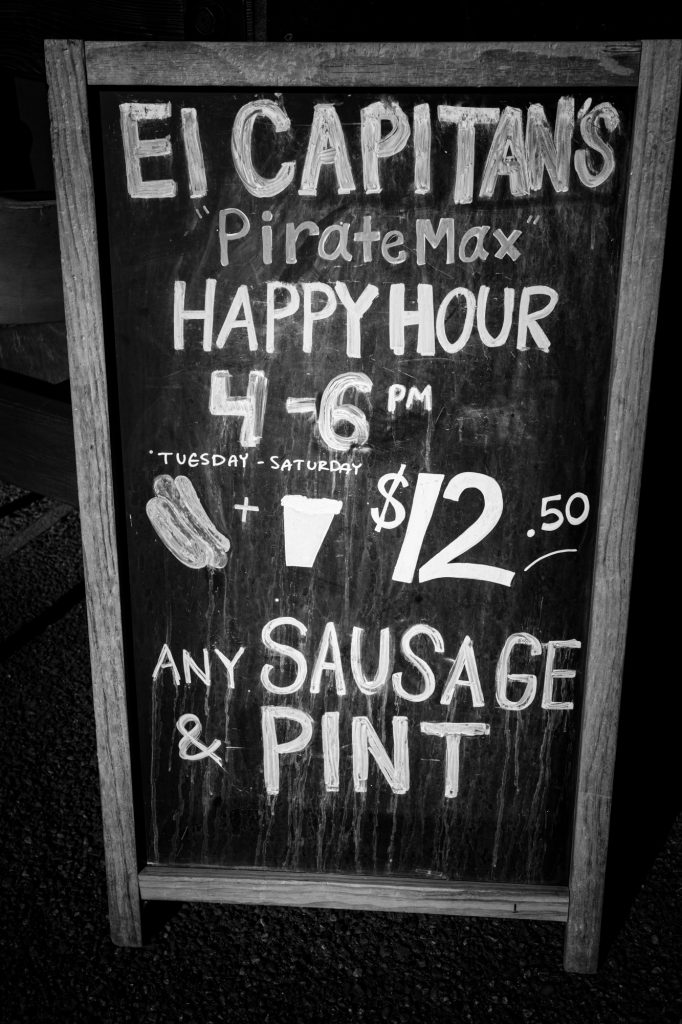 El CAPITAN'S
"PirateMax"
HAPPY HOUR
4-6 PM
*TUESDAY - SATURDAY
+ $12.50
ANY SAUSAGE
& PINT